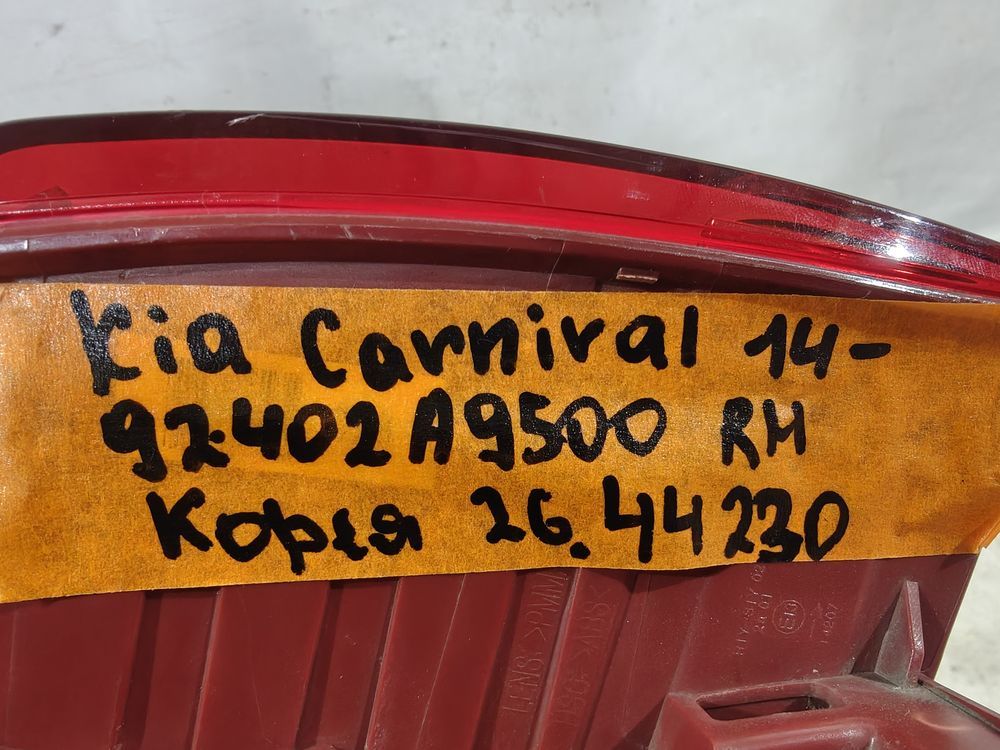 Kia Carnival 14-
92402A9500 RH
Корея 26.44230